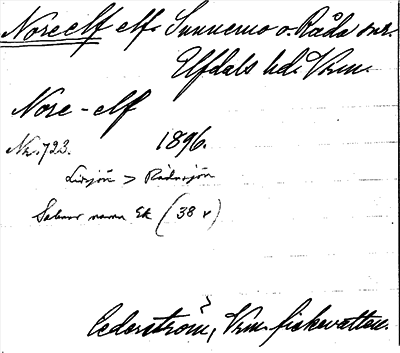 Noreelf elf. Sunnemo o. Råda snr.
Elfdals hd. Vrm.
Nore-elf
Nr. 723. 1896.
Lisjön > Rådasjön
Saknar namn Ek (38 v)
Cederström, Vrm. fiskevatten.